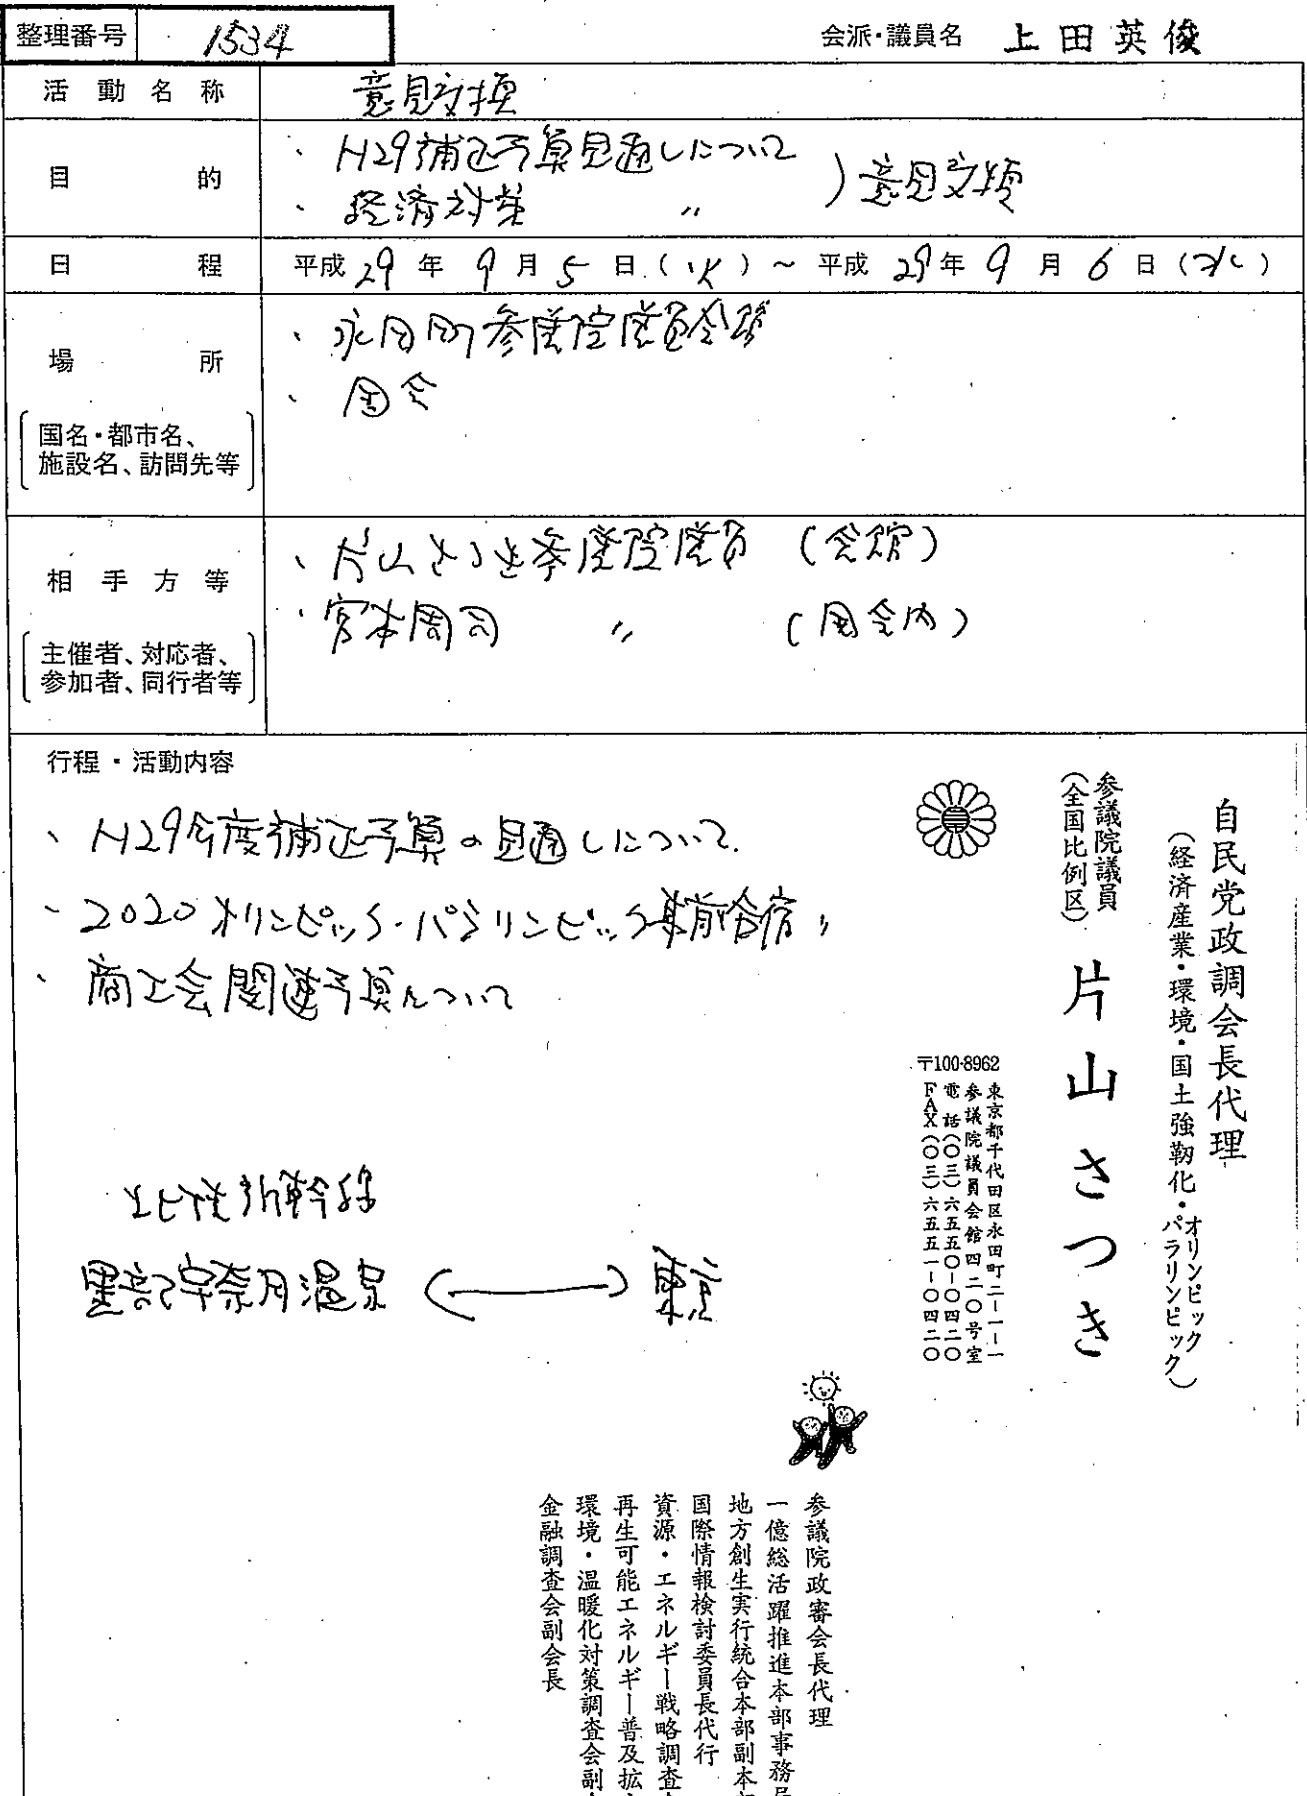 整理番号 1534
会派・議員名 上田英俊
活動名称 意見交換
目的
・H29補正予算見通しについて
・経済対策 〃
）意見交換
日程 平成29年9月5日(火)～平成29年9月6日(水)
場所
国名・都市名、
施設名、訪問先等
・永田町参議院議員会館
・国会
相手方等
主催者、対応者、
参加者、同行者等
・片山さつき参議院議員 (会館)
・宮本周司 〃 (国会内)
行程・活動内容
・H29年度補正予算の見通しについて
・2020オリンピック・パラリンピック事前合宿 〃
・商工会関連予算について
北陸新幹線
黒部宇奈月温泉 ⟷ 東京
自民党政調会長代理
(経済産業・環境・国土強靭化・オリンピックパラリンピック)
参議院議員
(全国比例区)
片山さつき
〒100-8962
東京都千代田区永田町二-一-一
参議院議員会館四二〇号室
電話(〇三)六五五〇-〇四二〇
FAX(〇三)六五五一-〇四二〇
参議院政審会長代理
一億総活躍推進本部事務局
地方創生実行統合本部副本部
国際情報検討委員長代行
資源・エネルギー戦略調査会
再生可能エネルギー普及拡大
環境・温暖化対策調査会副会
金融調査会副会長